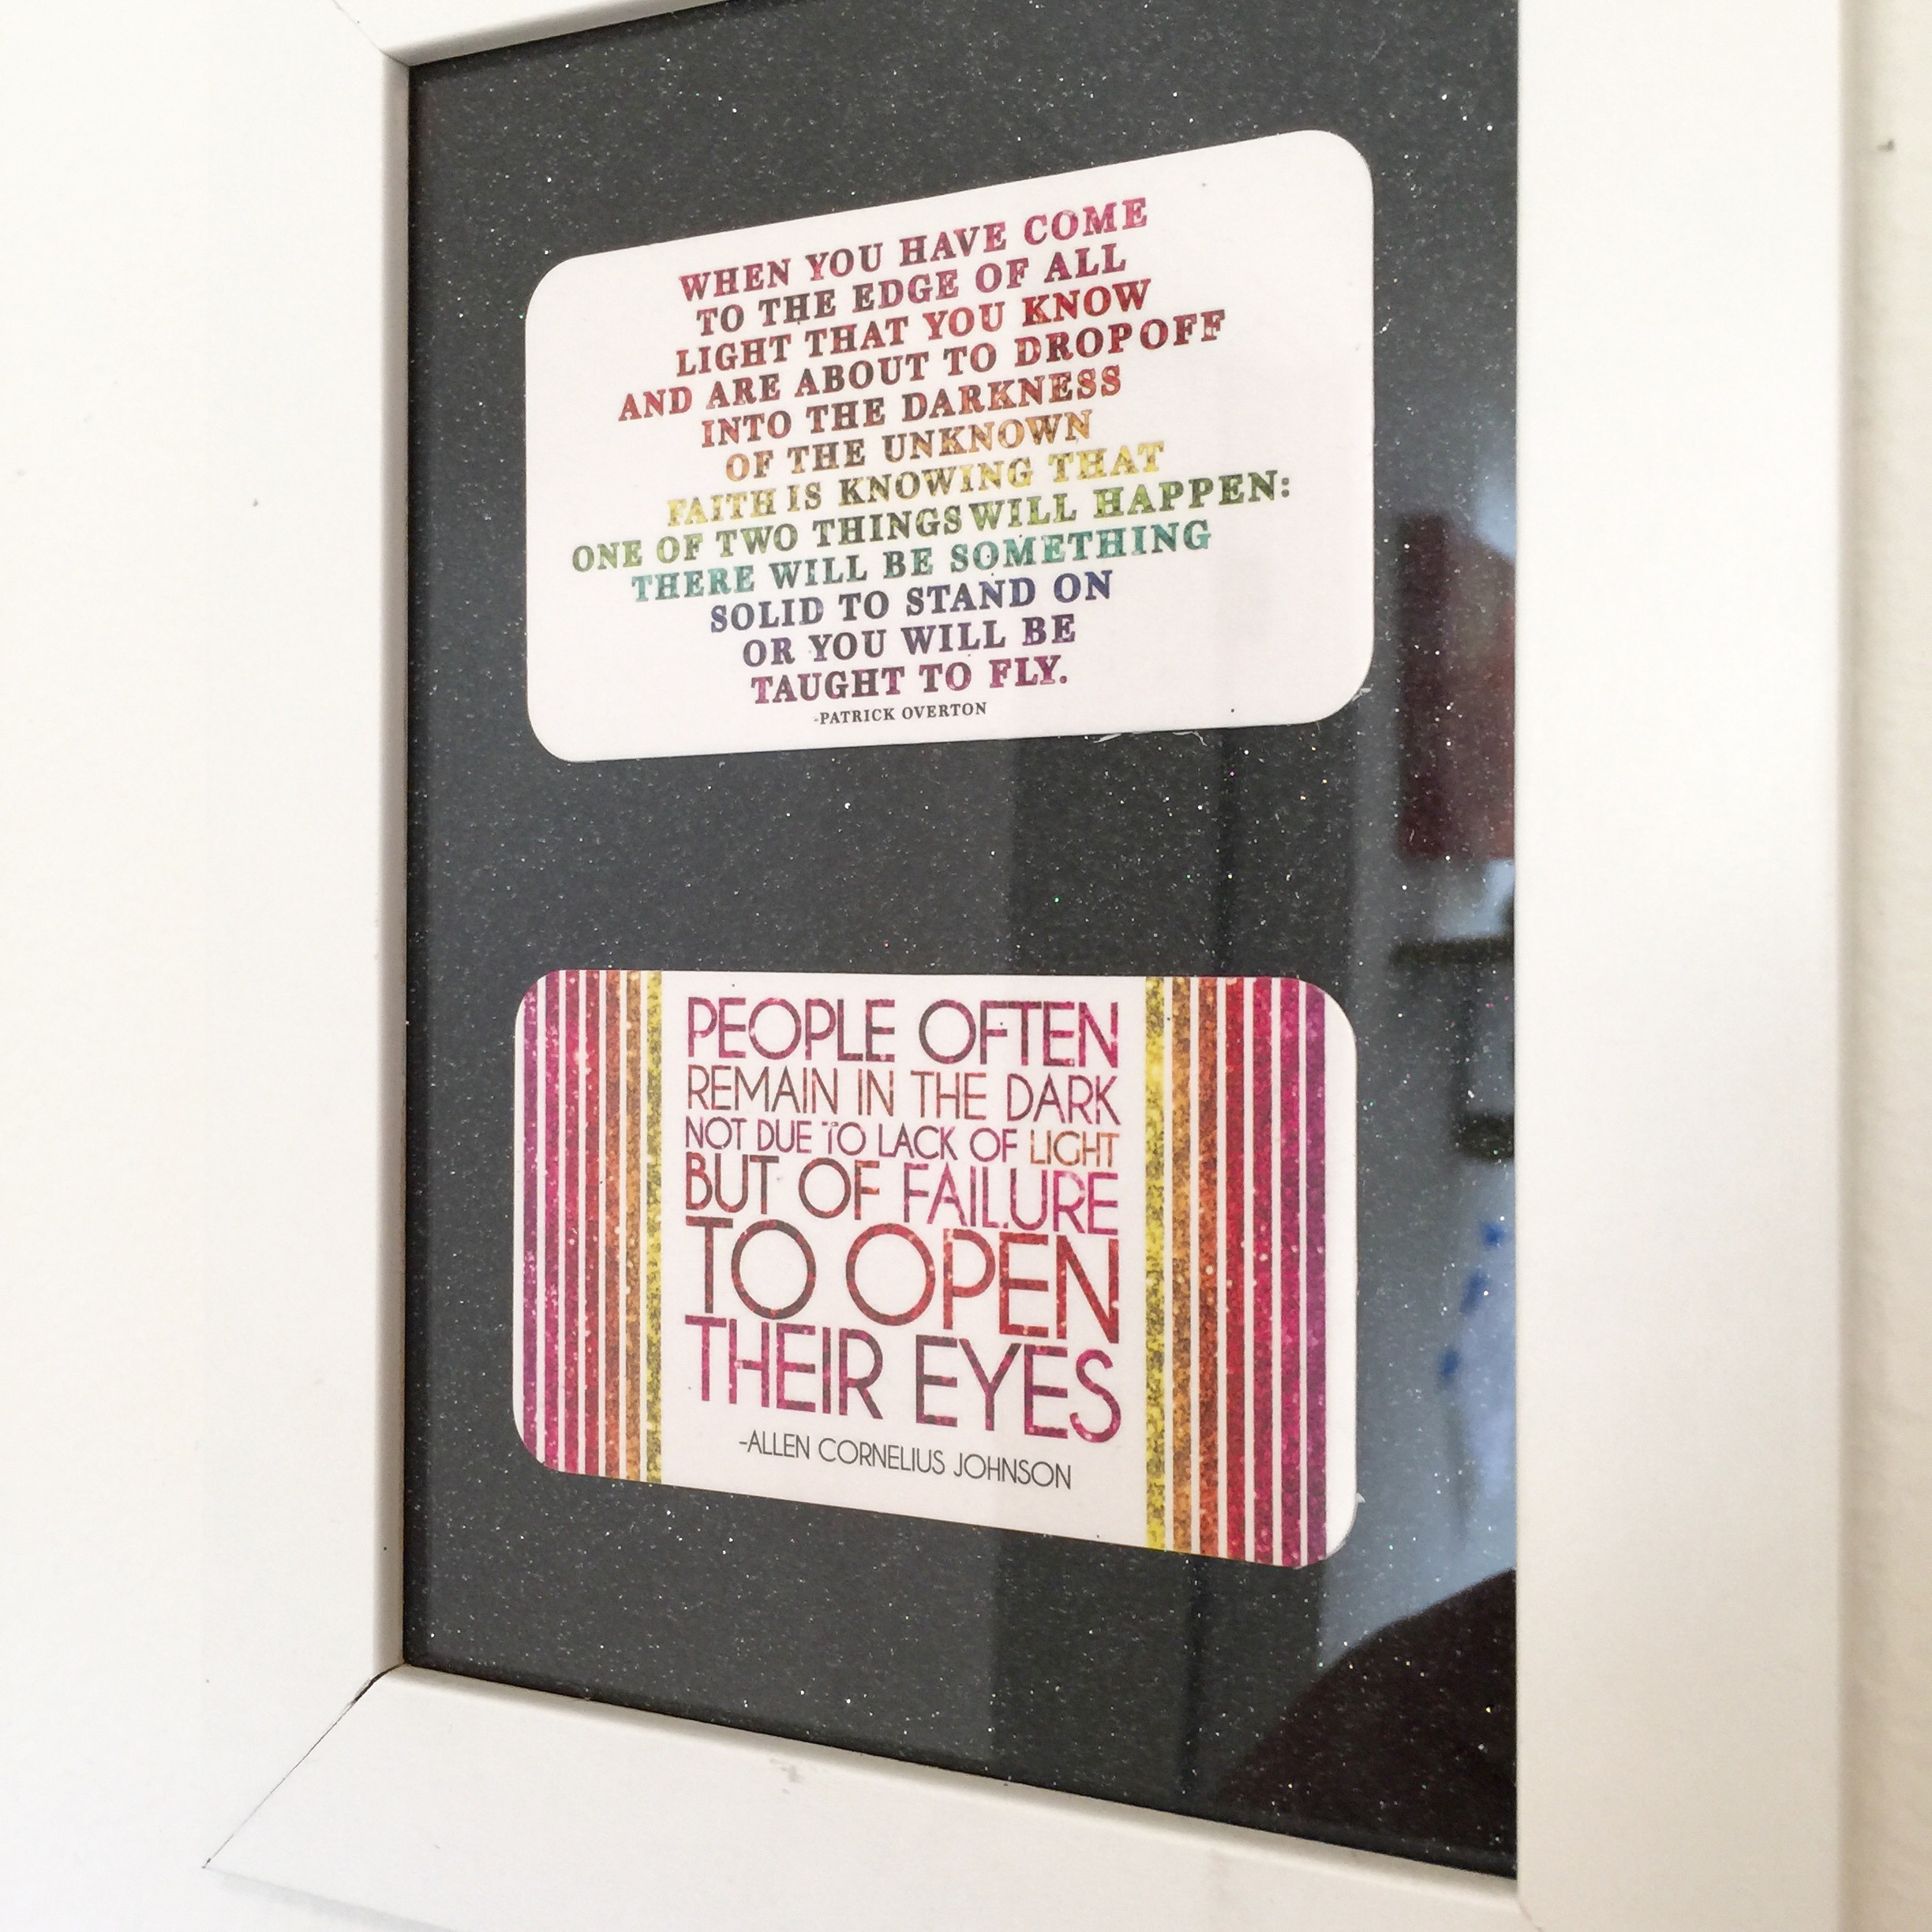 WHEN YOU HAVE COME
TO THE EDGE OF ALL
LIGHT THAT YOU KNOW
AND ARE ABOUT TO DROP OFF
INTO THE DARKNESS
OF THE UNKNOWN
FAITH IS KNOWING THAT
ONE OF TWO THINGS WILL HAPPEN:
THERE WILL BE SOMETHING
SOLID TO STAND ON
OR YOU WILL BE
TAUGHT TO FLY.
-PATRICK OVERTON
PEOPLE OFTEN
REMAIN IN THE DARK
NOT DUE TO LACK OF LIGHT
BUT OF FAILURE
TO OPEN
THEIR EYES
-ALLEN CORNELIUS JOHNSON